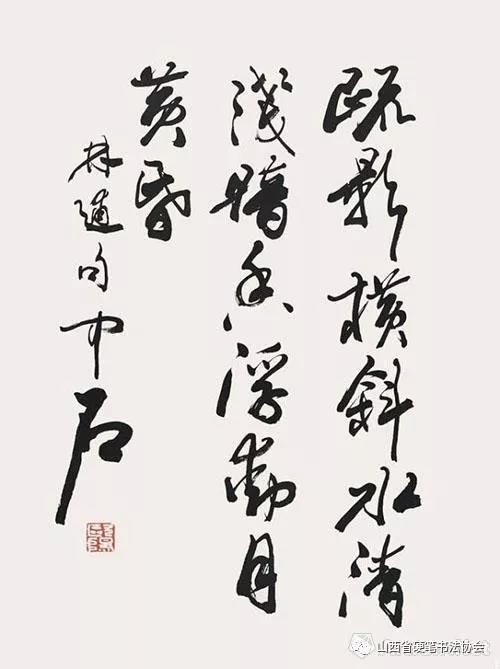 疏影橫斜水清
淺暗香浮動月
黃昏
林逋句中石
山西省硬笔书法协会